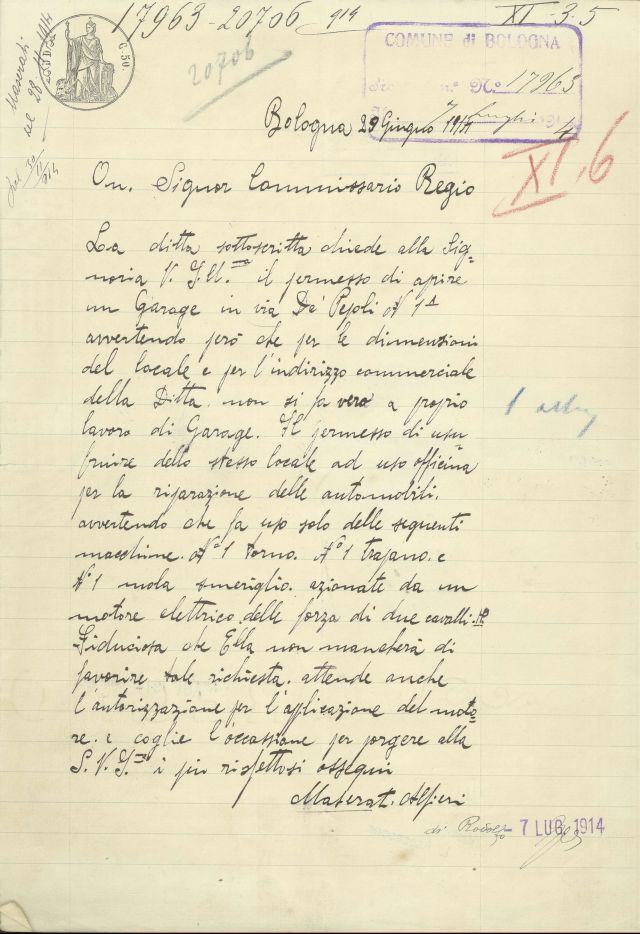 17963-20706 914
XI-3.5
Maserati
28
C. 50.
20706
COMUNE di BOLOGNA
N° 17963
Luglio 914
Bologna 29 Giugno 1914
XI, 6
On. Signor Commissario Regio
La ditta sottoscritta chiede alla Sig=
noria V. Ill.ma il permesso di aprire
un Garage in via De' Pepoli N 1A
avvertendo però che per le dimensioni
del locale e per l'indirizzo commerciale
della Ditta. non si fa vero a proprio
lavoro di Garage. Il permesso di usu
fruire dello stesso locale ad uso officina
per la riparazione delle automobili.
avvertendo che fa uso solo delle seguenti
macchine. N° 1 torno. N° 1 trapano. e
N° 1 mola smeriglio. azionate da un
motore elettrico delle forza di due cavalli. HP
Fiduciosa che Ella non mancherà di
favorire tale richiesta. attende anche
l'autorizzazione per l'applicazione del moto=
re. e coglie l'occassione per porgere alla
S. V. Ill.ma i più rispettosi ossequi
Maserati Alfieri
di Rodolfo
7 LUG. 1914